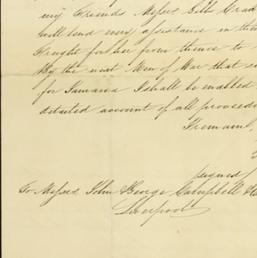 my Friends Messrs Gibb
will lend my assistance in
Freight for her from thence to
By the next Men of War that
for Jamaica I shall be enabled
detailed account of all proceed
I remain,
signed
To Messrs John George Campbell &
Liverpool